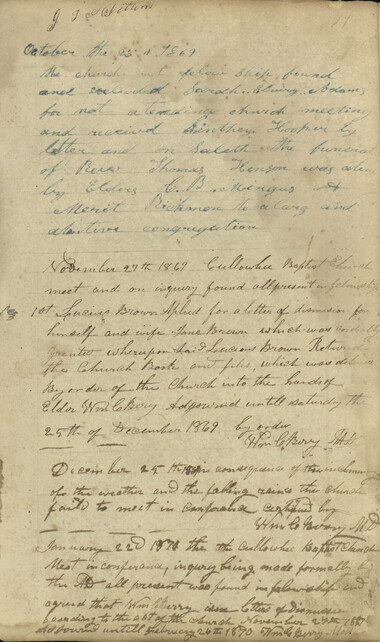 October the 23 d 1869
the church met felow ship found
and excluded Sarah Adams
for not atending church meeting
and receivd Hooper by
letter and on the funeral
of Thomas Henson was aten
by Elders C. B. Mingus &
Merit Rickman to alarg and
atentive congregation
November 27th 1869 Cullowhee Baptist Church
meet and on inquiry found all present in felowship
1st Lucius Brown Aplied for a letter of dismission for
himself and wife Jane Brown which was
granted whereupon Said Lucious Brown Returned
the Church Book and files, which was
By order of the Church into the hands of
Elder Wm C Berry Adjourned untill saturday the
25th of December 1869. by order
Wm C, Berry Md
December 25th in consequence of the inclemency
of the weather and the falling rains the church
faild to meet in conference by
Wm C Berry, MD
January 22d 1870 the Cullowhee Baptist Church
Meet in conferance, inquiry being made formally by
the MD all present was found in felowship and
agreed that Wm Berry letters of dismission
according to the act of the Church November 27th 1869
adjourned untill February 26th 1870 Wm C Berry Md